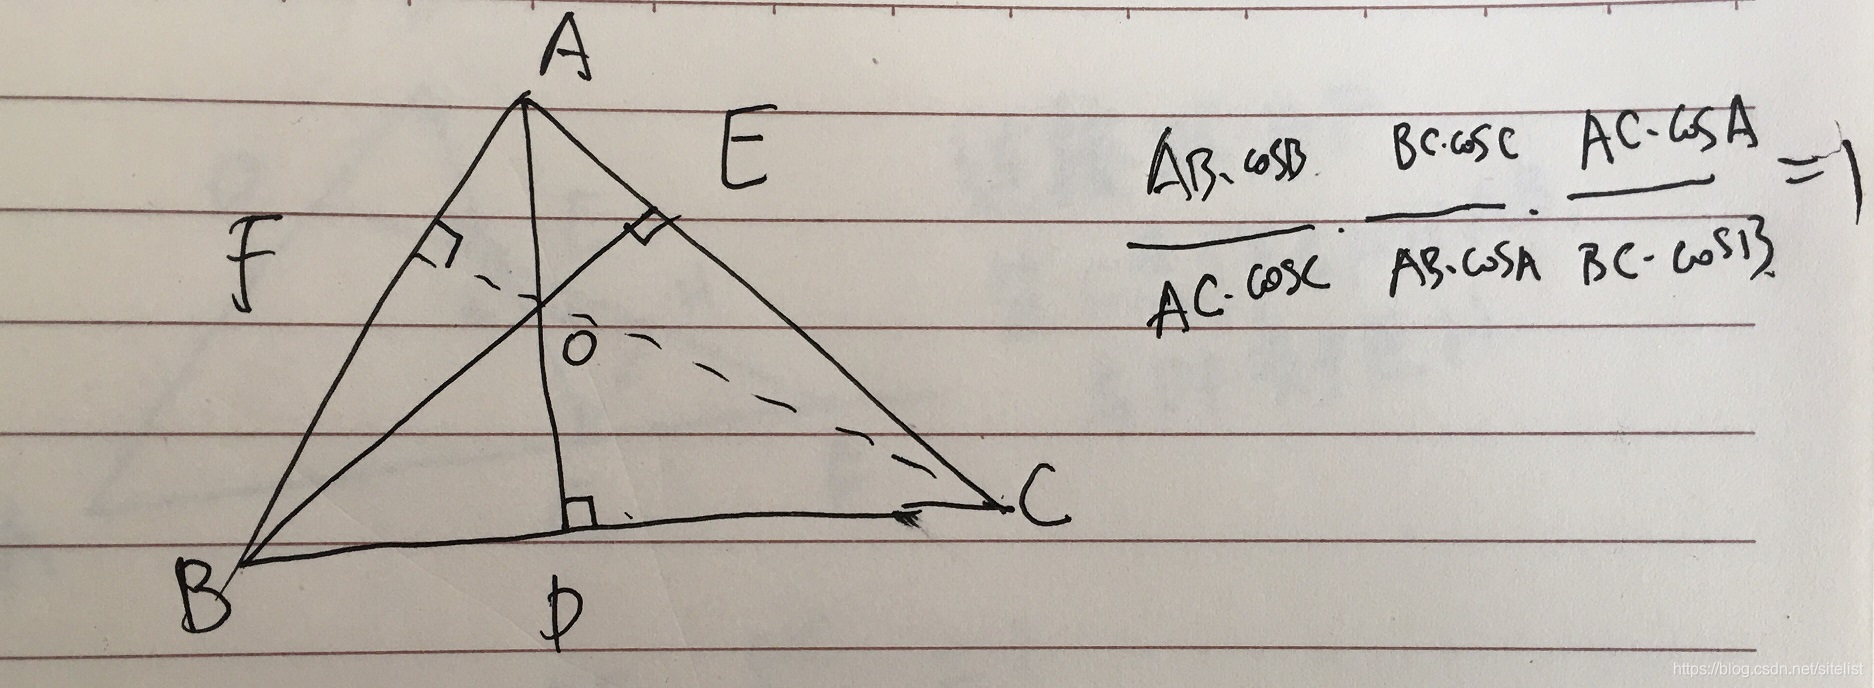 A
E
F
O
B
D
C
AB·cosB/AC·cosC · BC·cosC/AB·cosA · AC·cosA/BC·cosB = 1
https://blog.csdn.net/sitelist